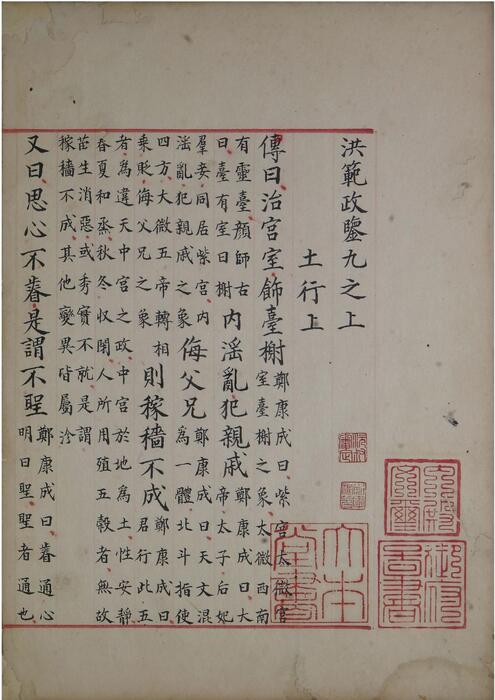 洪範政鑒九之上
土行上
傳曰治宮室飾臺榭鄭康成曰紫宮太微宮
室臺榭之象太微西南
有靈臺顏師古
曰臺有室曰榭內淫亂犯親戚鄭康成曰大
帝太子后妃
羣妾同居紫宮內
淫亂犯親戚之象侮父兄鄭康成曰天文混
為一體北斗指使
四方大微五帝轉相
乗貶侮父兄之象則稼穡不成鄭康成曰
君行此五
者為違天中宮之政中宮於地為土性安靜
春夏和烝秋冬収閉人所用殖五穀者無故
苗生消惡或秀實不就是謂
稼穡不成其他變異皆屬沴
又曰思心不睿是謂不聖鄭康成曰睿通心
明曰聖聖者通也
大本堂書